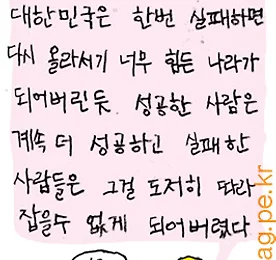 대한민국은 한번 실패하면
다시 올라서기 너무 힘든 나라가
되어버린듯. 성공한 사람은
계속 더 성공하고 실패한
사람들은 그걸 도저히 따라
잡을수 없게 되어버렸다
ag.pe.kr